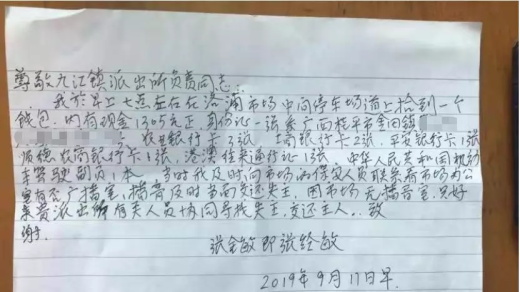 尊敬九江镇派出所负责同志:
我于早上七点左右在洛浦市场中间停车场道上拾到一个
钱包,内有现金1305元正,身份证一张系广西桂平市金田镇
农业银行卡3张 工商银行卡2张,平安银行卡1张
顺德农商银行卡1张,港澳往来通行证1张,中华人民共和国机动
车驾驶副页1本。当时我及时与市场的值及人员联系看市场办公
室有否广播室,播音及时当面交还失主,因市场无播音室,只好
来贵派出所有关人员协同寻找失主,交还主人,.致
谢.
张金敏即张经敏
2019年9月17日早.